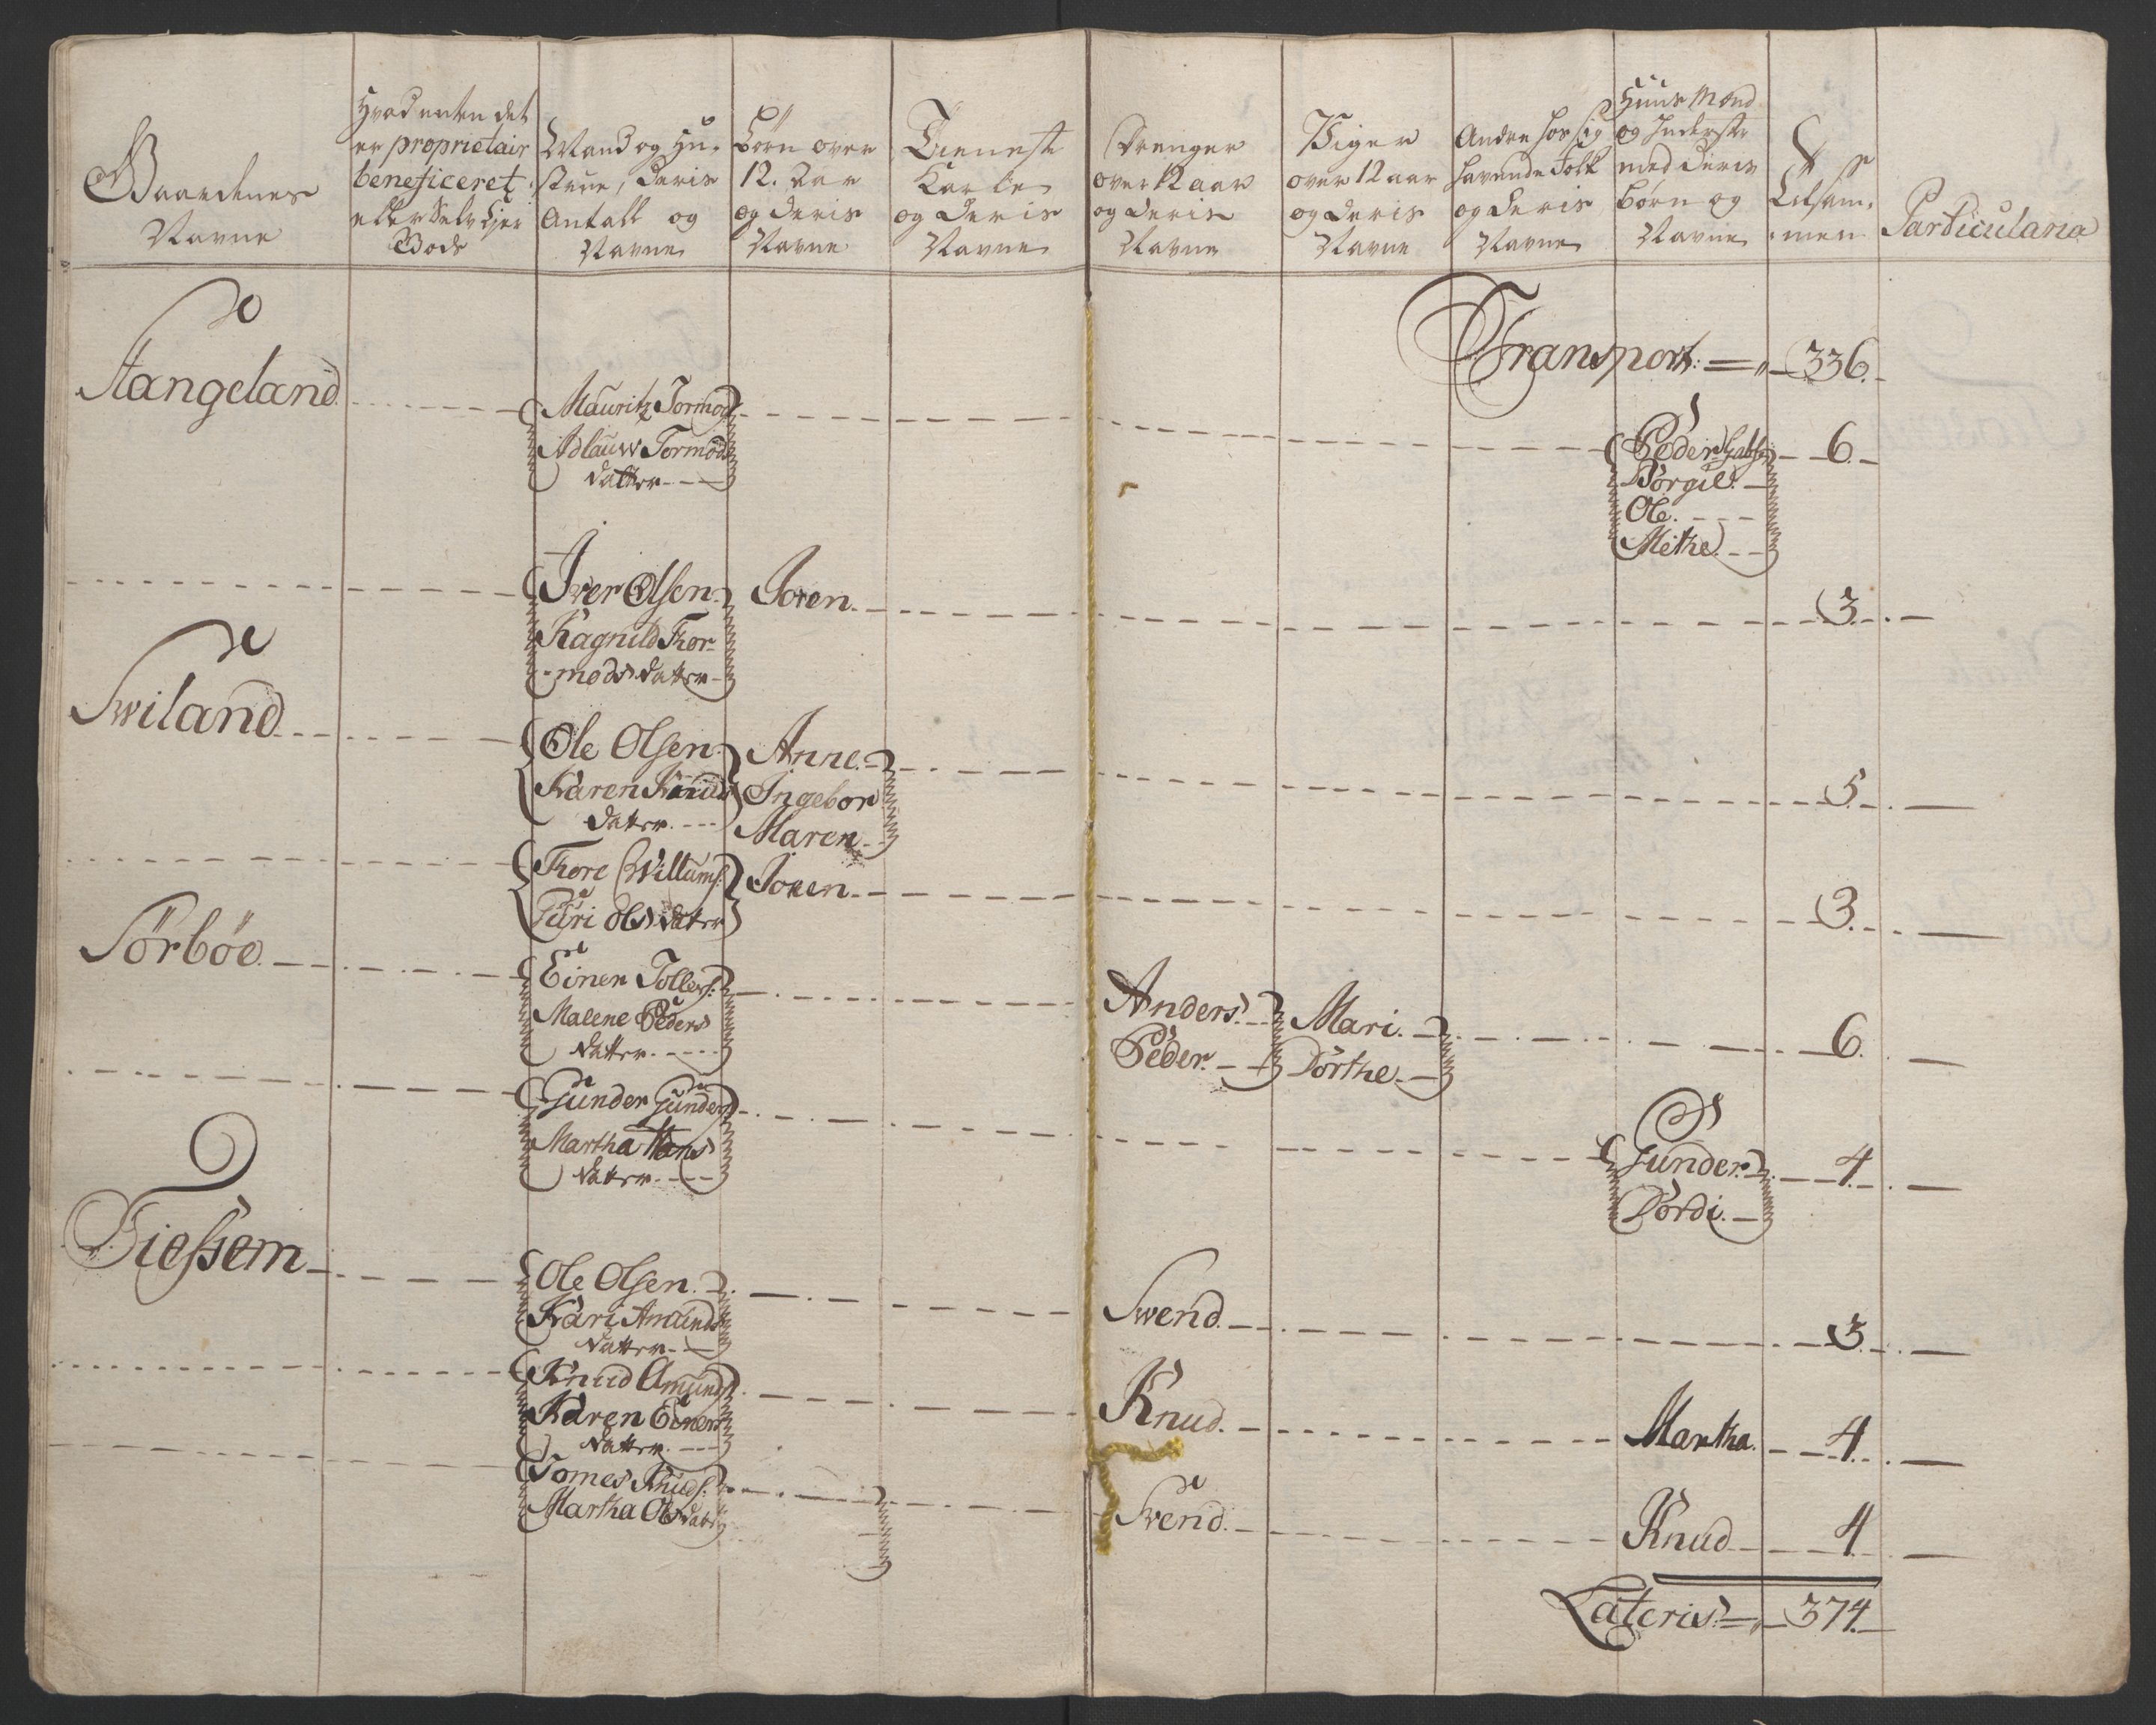 Gaardenes
Navne
Hvad enten det
er proprietair
beneficeret
eller Selv Ejer
Gods
Mand og Hu-
strue, deris
Antall og
Navne
Børn over
12. Aar
og deris
Navne
Tieneste
Karle
og deris
Navne
Drenger
over 12 aar
og deris
Navne
Piger
over 12 aar
og deris
Navne
Andre hos sig
havende Folk
og deris
Navne
Huus Mænd
og Inderster
med deris
børn og
Navne
Tilsam-
men
Particularia
Transport: = 336.
Stangeland
Mauritz Tormods
Adlauw Tormods
datter
Peder
Torgil
Ole
Methe
6.
Iver Olsen
Ragnild Thor-
mods datter
Soren
3.
Swiland
Ole Olsen
Karen Knuds
datter
Anne
Ingebor
Maren
5.
Thore Willums:
Guri Ols datter
Joren
3.
Sörböe
Einer Tollefs:
Malene Peders
datter
Anders
Peder
Mari
Dorthe
6.
Gunder Gunders
Martha Hans
datter
Gunder
Dordi
4.
Tiessem
Ole Olsen
Kari Amunds
datter
Swend
3.
Knud Amunds
Karen Einers
datter
Knud
Martha
4.
Tomes Knuds:
Martha Ols datr
Svend
Knud
4.
Lateris = 374.